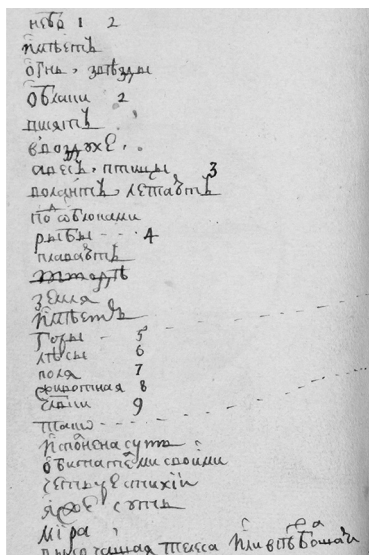 небо 1 2
имѣетъ
огнь, звѣзды
облаки 2
висятъ
в воздухѣ
а десь, птицы 3
долѣитъ, летаютъ
под облоками
рыбы 4
плаваютъ
земля
имѣетъ
горы 5
лѣсы 6
поля 7
животная 8
члвки 9
тако
исполнена суть
обитателми своими
четыре стихии
яже суть
мира
величайшая телеса